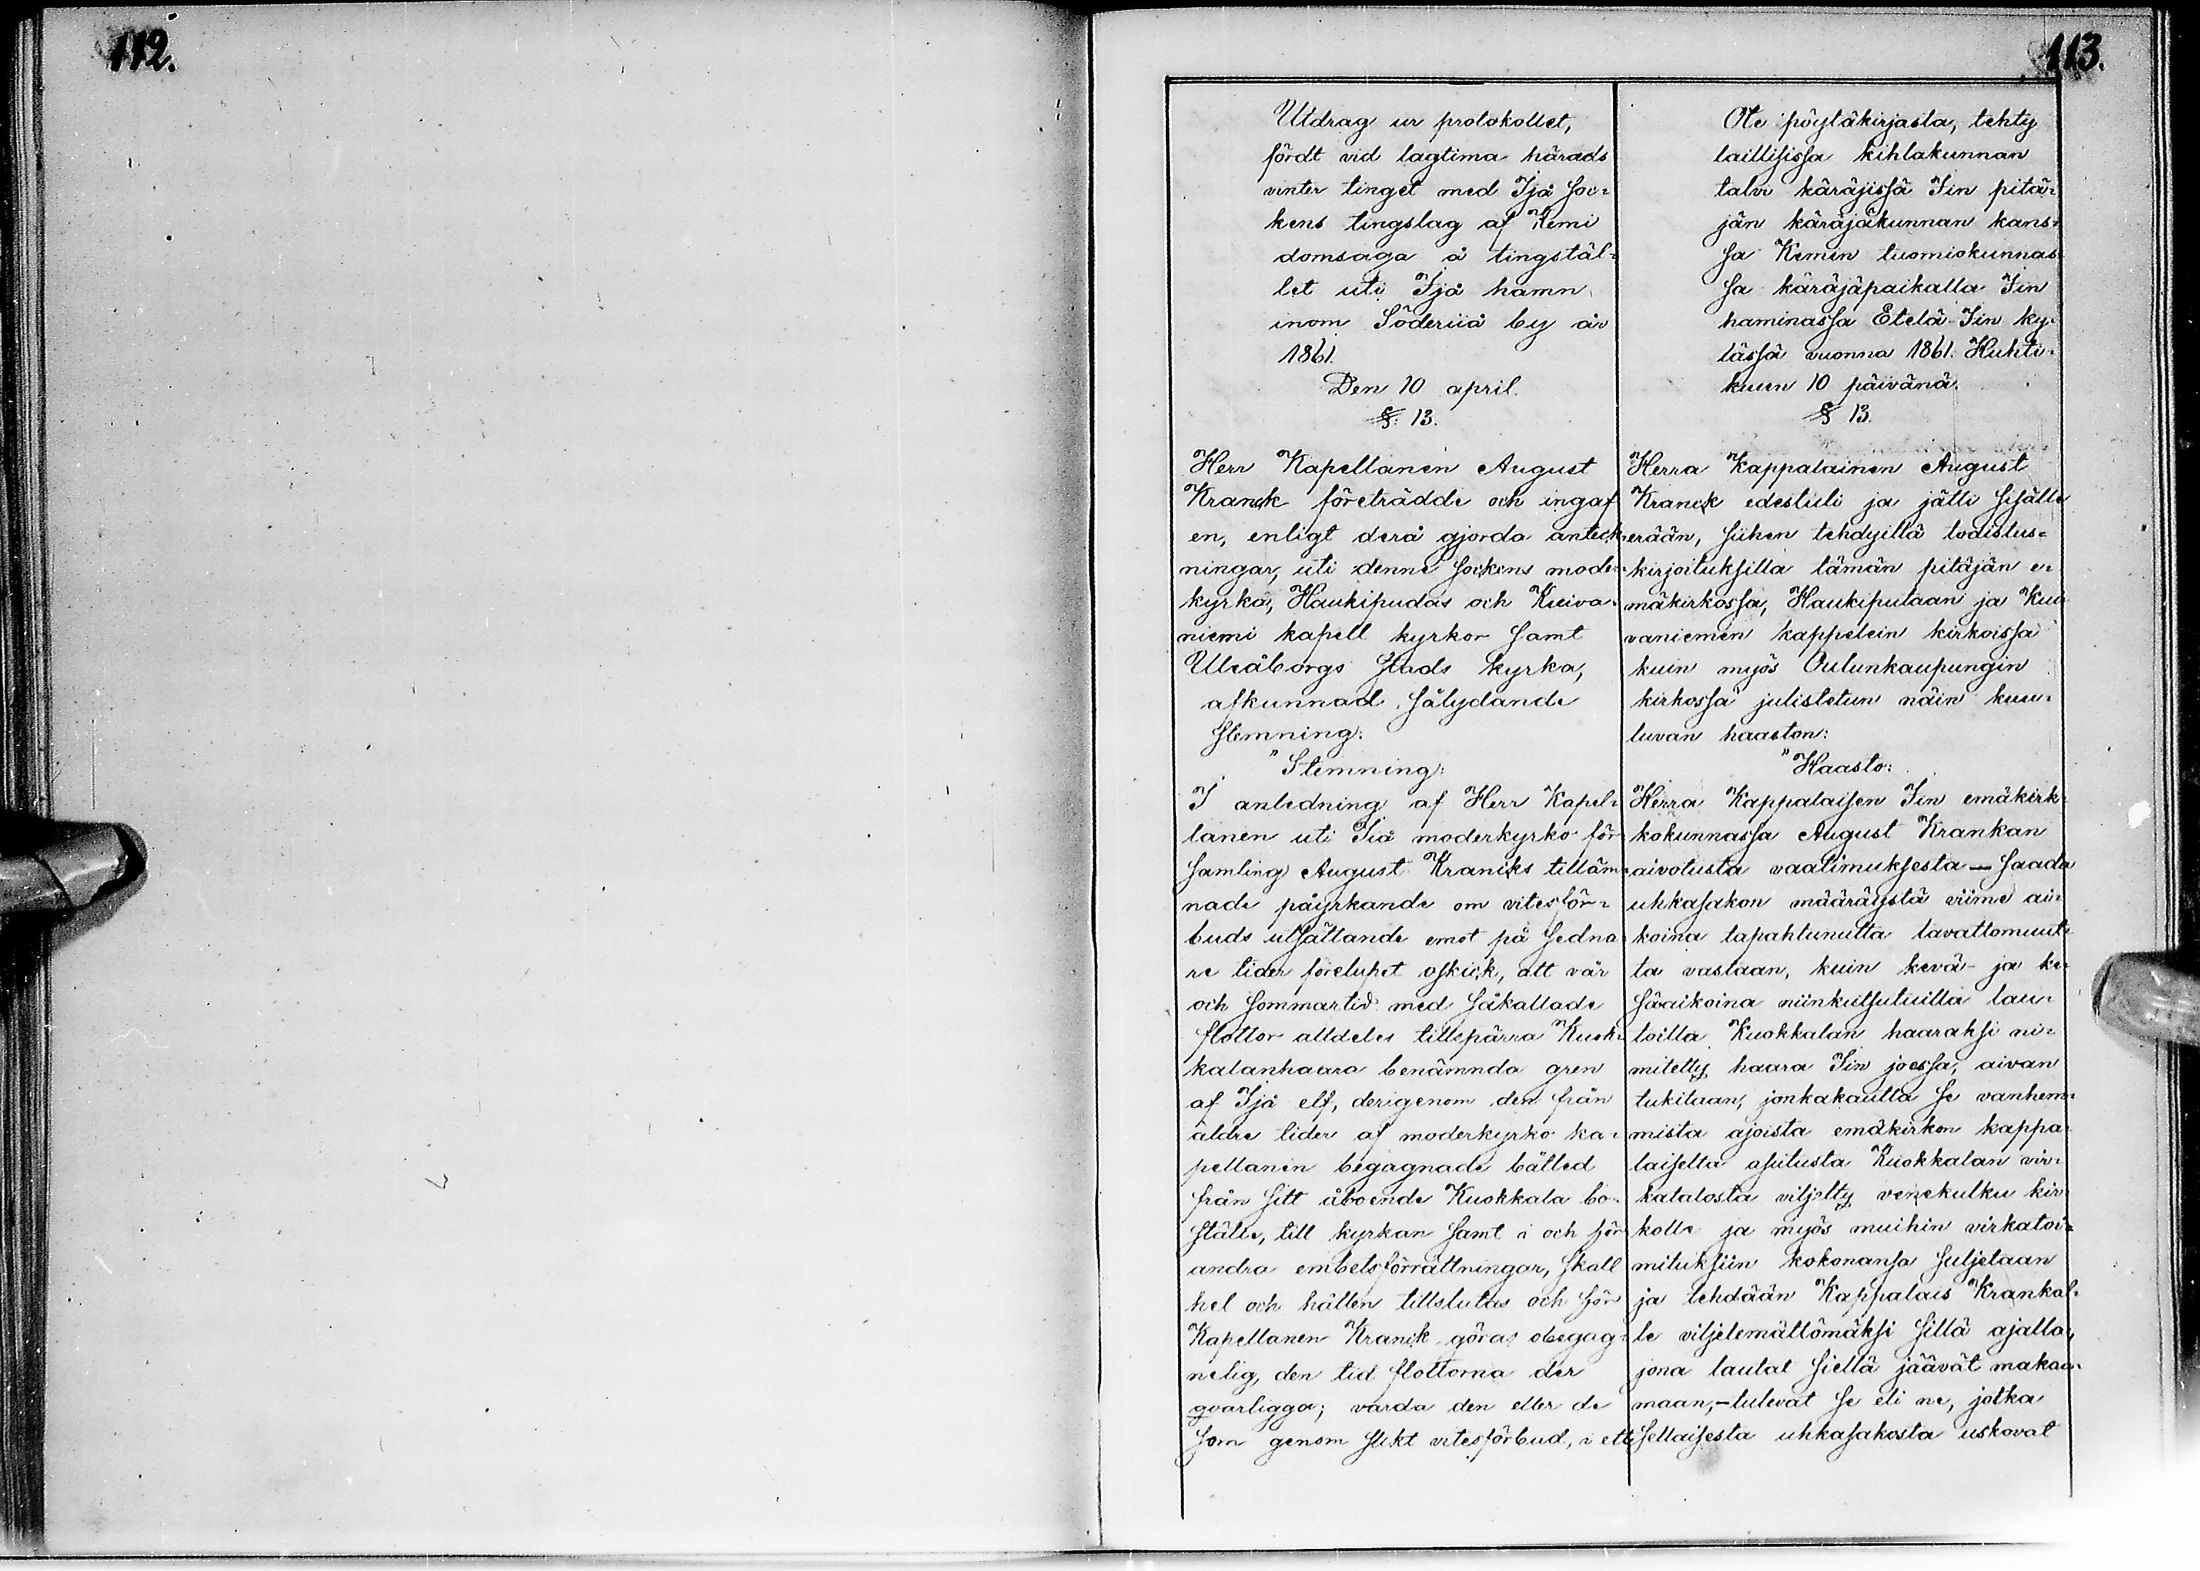 112.
113.
Utdrag ur protokollet,
fördt vid lagtima härads
vinter tinget med Ijå Soc=
kens tingslag af Kemi
domsaga å tingstäl=
let uti Ijå hamn
inom Söderiiå by år
1861.
Den 10 april.
§. 13.
Herr Kapellanen August
Kranck företrädde och ingaf
en, enligt derå gjorda anteck=
ningar, uti denne Sockens moder=
kyrka, Haukipudas och Kuiva=
niemi kapell kyrkor Samt
Uleåborgs Stads kyrka,
afkunnad Sålydande
Stemning:
"Stemning:
I anledning af Herr Kapel=
lanen uti Iiå moderkyrko för=
Samling August Krancks tilläm=
nade påyrkande om vitesför=
buds utsättande emot på Sedna=
re tider förelupet oskick, att vår
och Sommartid med Såkallade
flottor alldeles tillspärra Kuok=
kalanhaara benämnda gren
af Ijå elf, derigenom den från
äldre tider af moderkyrko ka=
pellanen begagnade båtled
från Sitt åboende Kuokkala bo=
ställe, till kyrkan Samt i och för
andra embetsförrättningar, Skall
hel och hållen tillslutas och för
Kapellanen Kranck göras obegag=
nelig, den tid flottorna der
qvarligga; varda den eller de
Som genom Slikt vitesförbud, i ett
Ote pöytäkirjasta, tehty
laillisissa kihlakunnan
talvi käräjissä Iin pitä=
jän käräjäkunnan kans=
sa Kemin tuomiokunnas=
sa käräjäpaikalla Iin
haminassa Etelä-Iin ky=
lässä vuonna 1861. Huhti=
kuun 10 päivänä.
§ 13.
Herra Kappalainen August
Kranck edestuli ja jätti sisälle
erään, siihen tehdyillä todistus=
kirjoituksilla tämän pitäjän e=
mäkirkossa, Haukiputaan ja Kui=
vaniemen kappelein kirkoissa
kuin myös Oulunkaupungin
kirkossa julistetun näin kuu=
luvan haaston:
"Haasto:
Herra Kappalaisen Iin emäkirk=
kokunnassa August Krankan
aivotusta vaatimuksesta – saada
uhkasakon määräystä viime ai=
koina tapahtunutta tavattomuut=
ta vastaan, kuin kevä- ja ke=
säaikoina niinkutsutuilla lau=
toilla Kuokkalan haaraksi ni=
mitetty haara Iin joessa, aivan
tukitaan, jonkakautta se vanhem=
mista ajoista emäkirkon kappa=
laiselta asutusta Kuokkalan vir=
katalosta viljelty venekulku kir=
kolle ja myös muihin virkatoi=
mituksiin kokonansa suljetaan
ja tehdään Kappalais Krankal=
le viljelemättömäksi sillä ajalla,
jona lautat siellä jäävät makaa=
maan, – tulevat se eli ne, jotka
sellaisesta uhkasakosta uskovat